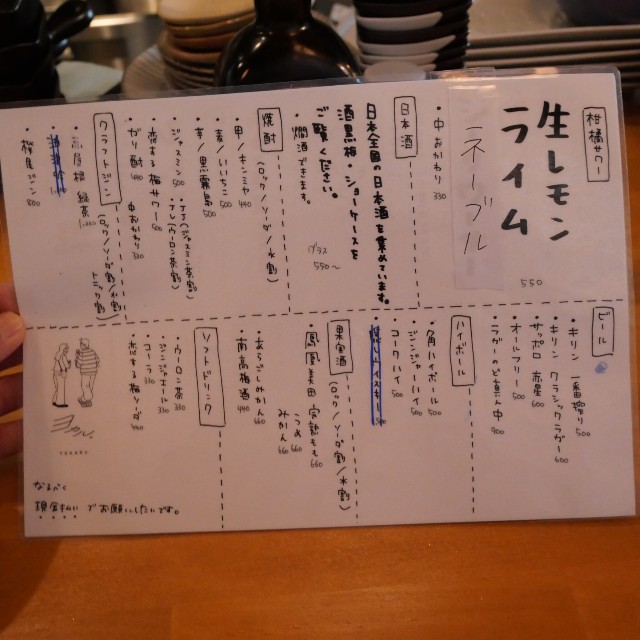 柑橘サワー
生レモン
ライム
ネーブル
550
・中おかわり 330
日本酒
日本全国の日本酒を集めています。
酒黒板・ショーケースを
ご覧ください。
・燗酒できます。
グラス
550〜
焼酎
(ロック/ソーダ/水割)
・甲/キンミヤ 440
・麦/いいちこ 500
・芋/黒霧島 500
・ジャスミン 500
・恋する梅サワー 500
・ガリ酎 440
・中おかわり 330
クラフトジン
(ロック/ソーダ/水割/
トニック割)
・桜尾ジン 800
ビール
・キリン 一番搾り 500
・キリン クラシックラガー 600
・サッポロ 赤星 600
・オールフリー 500
ハイボール
・角ハイボール 500
・ジンジャーハイ 500
・コークハイ 500
果実酒
(ロック/ソーダ割/水割)
・鳳凰美田 完熟もも 660
うめ 660
みかん 660
・あらごしみかん 660
・南高梅酒 440
ソフトドリンク
・ウーロン茶 330
・ジンジャエール 330
・コーラ 330
・恋する梅ソーダ 440
なるべく
現金払い でお願いしたいです。